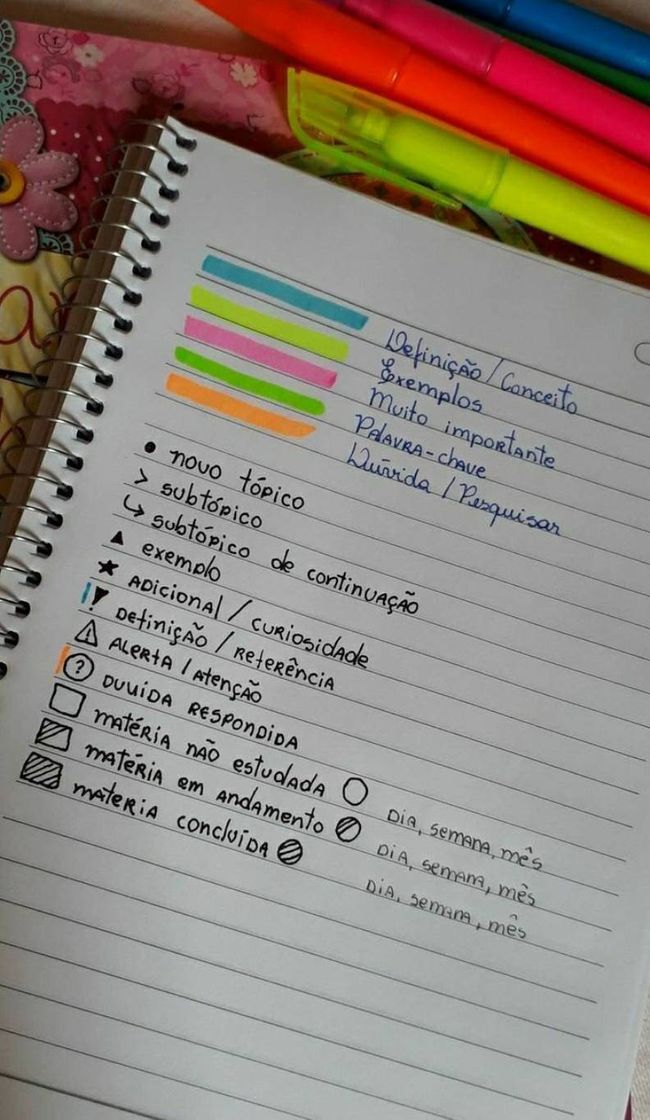 Definição / Conceito
Exemplos
Muito importante
Palavra-chave
Dúvida / Pesquisar
• novo tópico
> subtópico
↳ subtópico de continuação
▲ exemplo
★ Adicional / curiosidade
Definição / referência
⚠ Alerta / Atenção
? Duvida respondida
matéria não estudada Dia, semana, mês
matéria em andamento Dia, semana, mês
materia concluída Dia, semana, mês